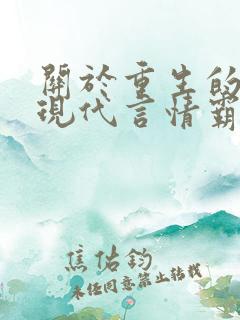 關於重生的
現代言情霸
焦佑鈞
未经同意禁止转载